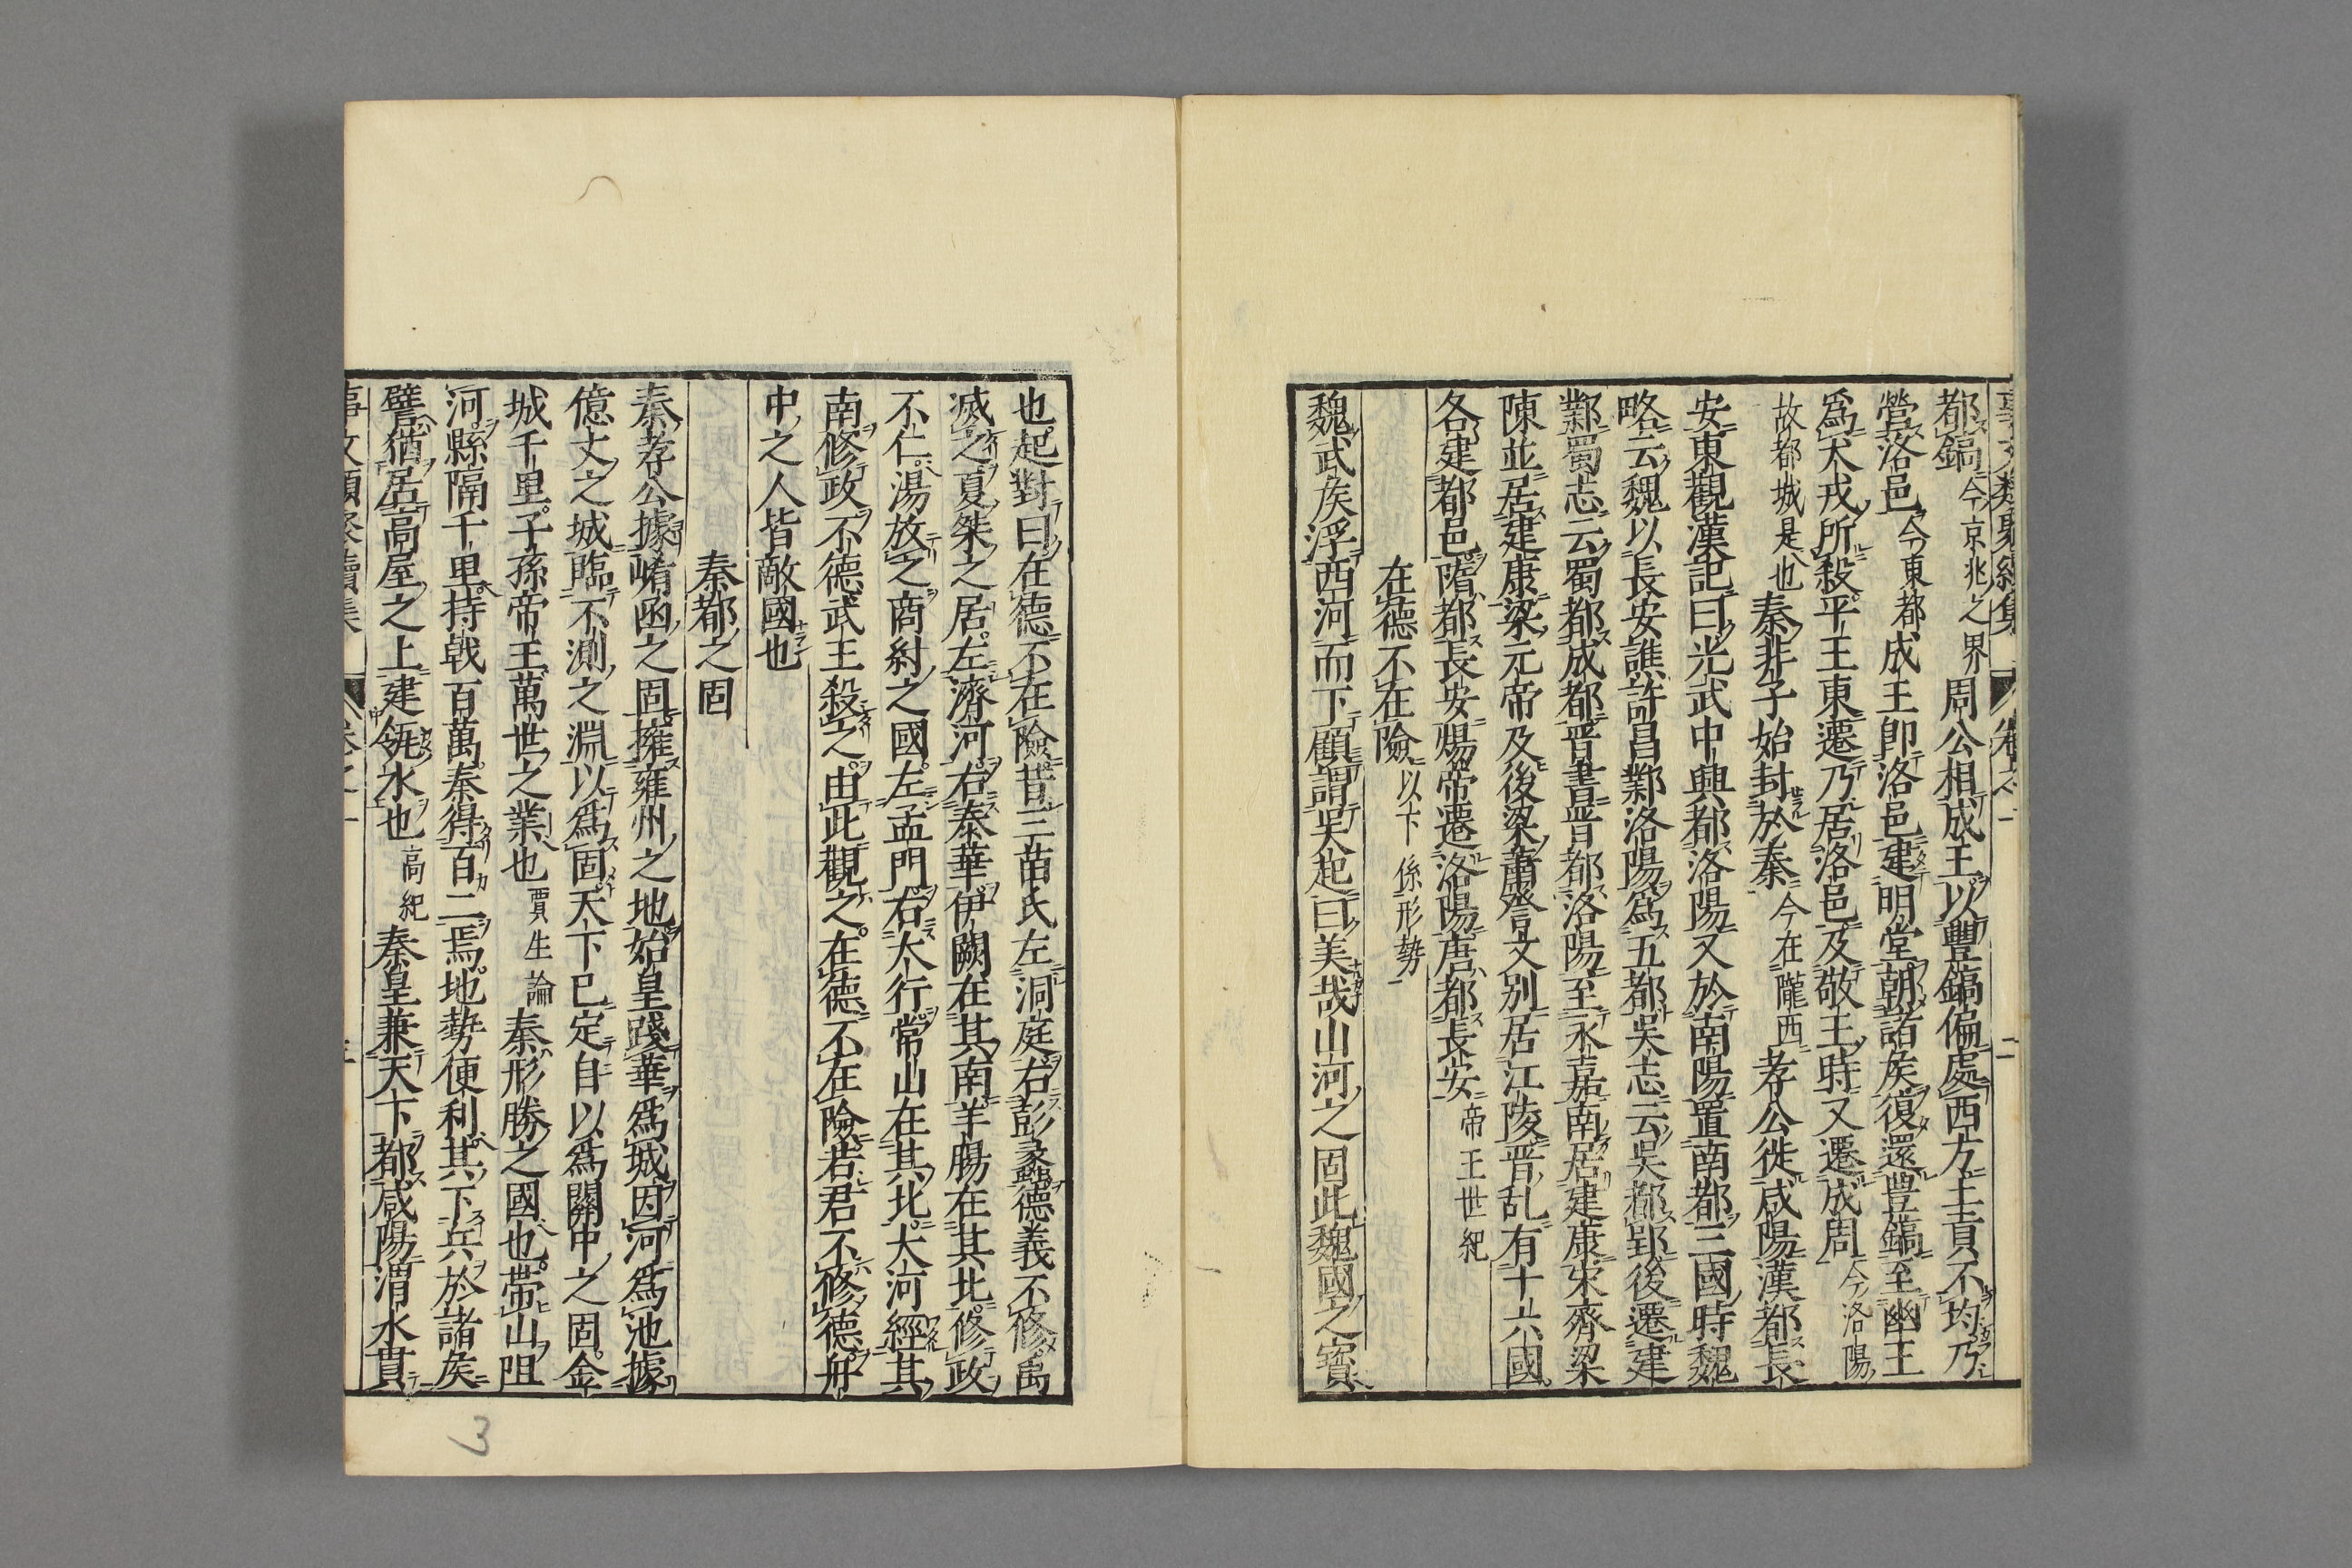 都鎬今京兆之界周公相成王以豐鎬偏處西方土貢不均乃
營洛邑今東都成王卽洛邑建明堂朝諸矦復還豊鎬至幽王
爲犬戎所殺平王東遷乃居洛邑及敬王時又遷成周今洛陽
故都城是也秦非子始封於秦今在隴西孝公徙咸陽漢都長
安東觀漢記曰光武中興都洛陽又於南陽置南都三國時魏
略云魏以長安譙許昌鄴洛陽爲五都吳志云吳都郢後遷建
鄴蜀志云蜀都成都晉書晋都洛陽至永嘉南居建康宋齊梁
陳並居建康梁元帝及後梁蕭詧文別居江陵晋乱有十六國
各建都邑隋都長安煬帝遷洛陽唐都長安帝王世紀
在德不在險以下係形勢
魏武矦浮西河而下顧謂吳起曰美哉山河之固此魏國之寳
也起對曰在德不在險昔三苗氏左洞庭右彭蠡德義不修禹
滅之夏桀之居左濟河右泰華伊闕在其南羊腸在其北修政
不仁湯放之商紂之國左孟門右太行常山在其北大河經其
南修政不德武王殺之由此觀之在德不在險若君不修德舟
中之人皆敵國也
秦都之固
秦孝公據崤函之固擁雍州之地始皇踐華爲城因河爲池據
億丈之城臨不測之淵以爲固天下已定自以爲關中之固金
城千里子孫帝王萬世之業也賈生論秦形勝之國也帶山阻
河縣隔千里持戟百萬秦得百二焉地勢便利其下兵於諸矦
譬猶居高屋之上建瓴水也高紀秦皇兼天下都咸陽渭水貫
事文類聚續集 卷之一
3